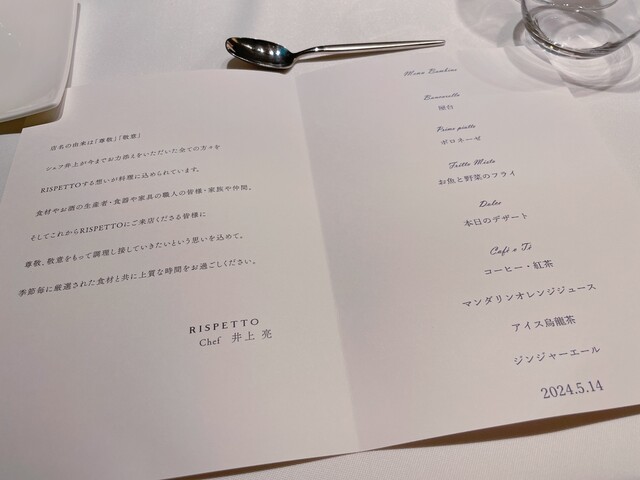 店名の由来は「尊敬」「敬意」
シェフ井上が今までお力添えをいただいた全ての方々を
RISPETTOする想いが料理に込められています。
食材やお酒の生産者・食器や家具の職人の皆様・家族や仲間。
そしてこれからRISPETTOにご来店くださる皆様に
尊敬、敬意をもって調理し接していきたいという思いを込めて。
季節毎に厳選された食材と共に上質な時間をお過ごしください。
RISPETTO
Chef 井上 亮
Menu Bambino
Benvenuto
屋台
Primo piatto
ボロネーゼ
Fritto Misto
お魚と野菜のフライ
Dolce
本日のデザート
Café o Tè
コーヒー・紅茶
マンダリンオレンジジュース
アイス烏龍茶
ジンジャーエール
2024.5.14